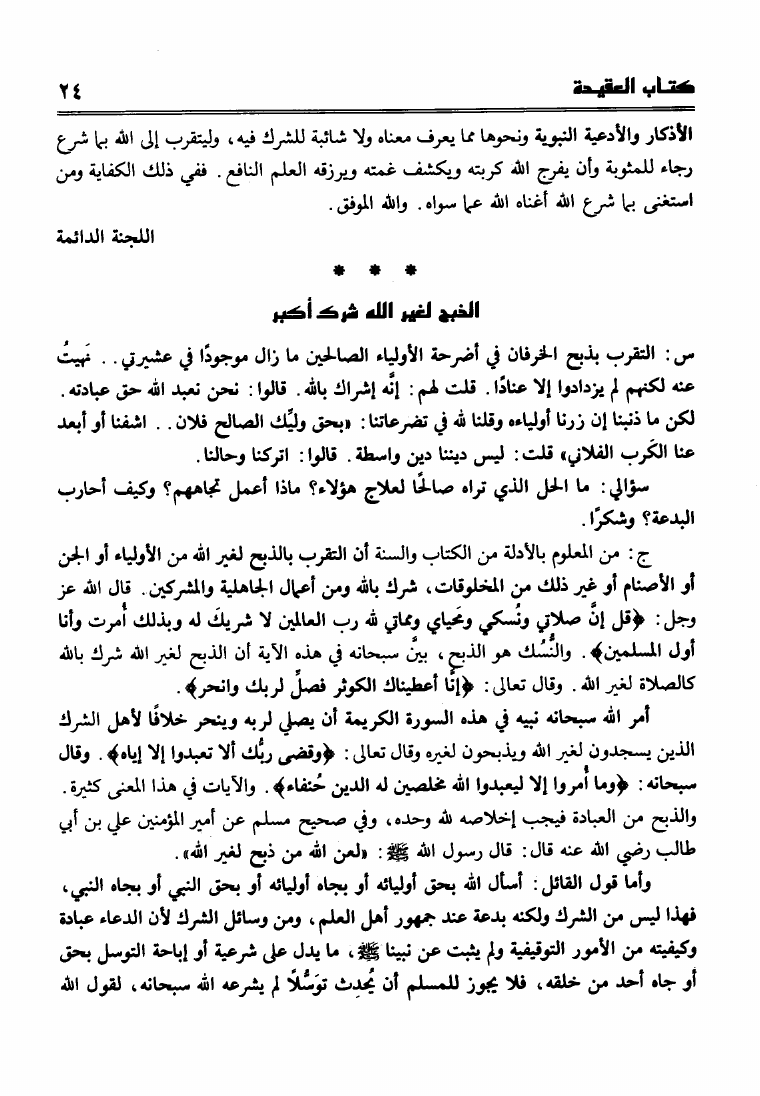 كتاب العقيدة
٢٤
الأذكار والأدعية النبوية ونحوها مما يعرف معناه ولا شائبة للشرك فيه، وليتقرب إلى الله بما شرع
رجاء للمثوبة وأن يفرج الله كربته ويكشف غمته ويرزقه العلم النافع. ففي ذلك الكفاية ومن
استغنى بما شرع الله أغناه الله عما سواه. والله الموفق.
اللجنة الدائمة
* * *
الذبح لغير الله شرك أكبر
س: التقرب بذبح الخرفان في أضرحة الأولياء الصالحين ما زال موجودًا في عشيرتي.. نهيتُ
عنه لكنهم لم يزدادوا إلا عنادًا. قلت لهم: إنَّه إشراك بالله. قالوا: نحن نعبد الله حق عبادته.
لكن ما ذنبنا إن زرنا أولياءه وقلنا لله في تضرعاتنا: «بحق وليِّك الصالح فلان.. اشفنا أو أبعد
عنا الكَرب الفلاني» قلت: ليس ديننا دين واسطة. قالوا: اتركنا وحالنا.
سؤالي: ما الحل الذي تراه صالحًا لعلاج هؤلاء؟ ماذا أعمل تجاههم؟ وكيف أحارب
البدعة؟ وشكرًا.
ج: من المعلوم بالأدلة من الكتاب والسنة أن التقرب بالذبح لغير الله من الأولياء أو الجن
أو الأصنام أو غير ذلك من المخلوقات، شرك بالله ومن أعمال الجاهلية والمشركين. قال الله عز
وجل: ﴿قل إنَّ صلاتي ونُسكي ومَحياي ومماتي لله رب العالمين لا شريكَ له وبذلك أُمرت وأنا
أول المسلمين﴾. والنُّسُك هو الذبح، بينَّ سبحانه في هذه الآية أن الذبح لغير الله شرك بالله
كالصلاة لغير الله. وقال تعالى: ﴿إنَّا أعطيناك الكوثر فصلِّ لربك وانحر﴾.
أمر الله سبحانه نبيه في هذه السورة الكريمة أن يصلي لربه وينحر خلافًا لأهل الشرك
الذين يسجدون لغير الله ويذبحون لغيره وقال تعالى: ﴿وقضى ربُّك ألا تعبدوا إلا إياه﴾. وقال
سبحانه: ﴿وما أُمروا إلا ليعبدوا الله مخلصين له الدين حُنفاء﴾. والآيات في هذا المعنى كثيرة.
والذبح من العبادة فيجب إخلاصه لله وحده، وفي صحيح مسلم عن أمير المؤمنين علي بن أبي
طالب رضي الله عنه قال: قال رسول الله ﷺ: «لعن الله من ذبح لغير الله».
وأما قول القائل: أسأل الله بحق أوليائه أو بجاه أوليائه أو بحق النبي أو بجاه النبي،
فهذا ليس من الشرك ولكنه بدعة عند جمهور أهل العلم، ومن وسائل الشرك لأن الدعاء عبادة
وكيفيته من الأمور التوقيفية ولم يثبت عن نبينا ﷺ، ما يدل على شرعية أو إباحة التوسل بحق
أو جاه أحد من خلقه، فلا يجوز للمسلم أن يُحدِث توَسُّلًا لم يشرعه الله سبحانه، لقول الله